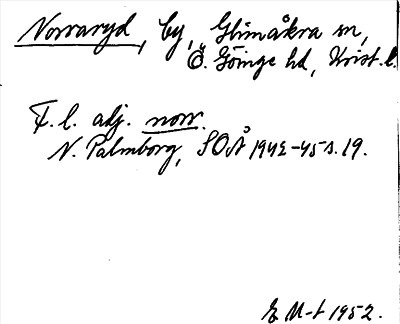 Norraryd, by, Glimåkra sn,
Ö. Göinge hd, Krist. l.
F. l. adj. norr.
N. Palmborg, SOÅ 1942-45 s. 19.
E M-t 1952.